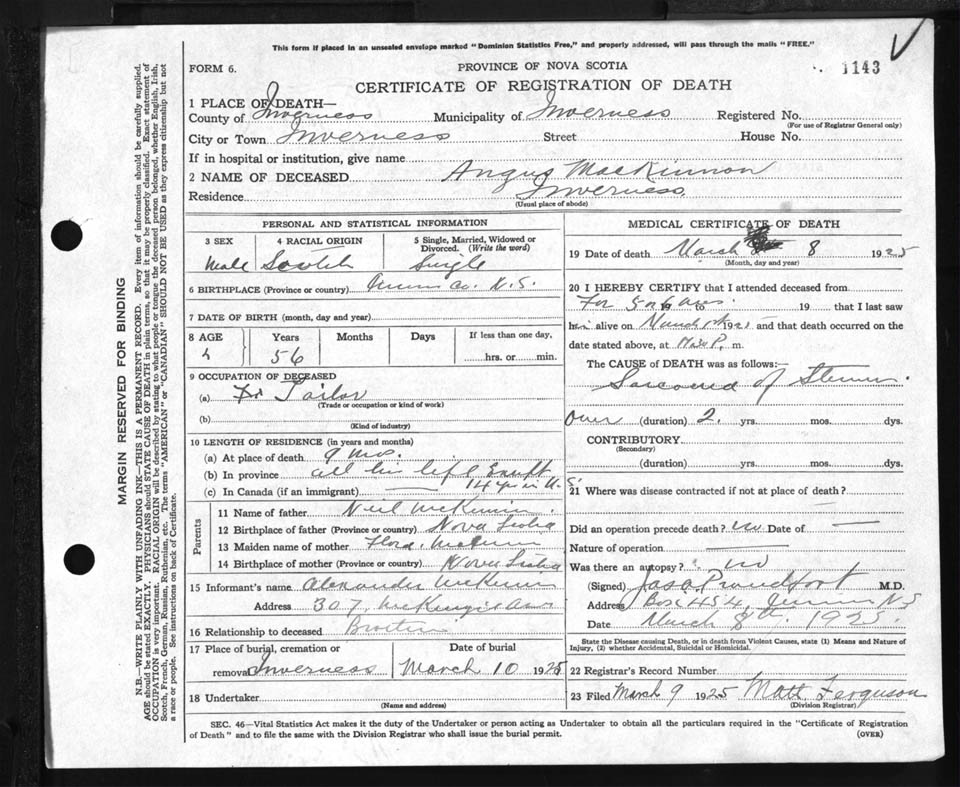 This form if placed in an unsealed envelope marked "Dominion Statistics Free," and properly addressed, will pass through the mails "FREE."
FORM 6.
PROVINCE OF NOVA SCOTIA
1143
CERTIFICATE OF REGISTRATION OF DEATH
1 PLACE OF DEATH—
County of Inverness Municipality of Inverness Registered No.
(For use of Registrar General only)
City or Town Inverness Street House No.
If in hospital or institution, give name
2 NAME OF DECEASED Angus MacKinnon
Residence Inverness
(Usual place of abode)
PERSONAL AND STATISTICAL INFORMATION
3 SEX 4 RACIAL ORIGIN 5 Single, Married, Widowed or Divorced. (Write the word)
Male Scotch Single
6 BIRTHPLACE (Province or country) Co. N.S.
7 DATE OF BIRTH (month, day and year)
8 AGE Years Months Days If less than one day,
56 hrs. or min.
9 OCCUPATION OF DECEASED
(a) Tailor
(Trade or occupation or kind of work)
(b)
(Kind of industry)
10 LENGTH OF RESIDENCE (in years and months)
(a) At place of death 9 mos.
(b) In province all his life Except
(c) In Canada (if an immigrant) 14 yr in U.S.
Parents
11 Name of father Neil McKinnon
12 Birthplace of father (Province or country) Nova Scotia
13 Maiden name of mother Flora
14 Birthplace of mother (Province or country) Nova Scotia
15 Informant's name Alexander McKinnon
Address 307, McKenzie Ave
16 Relationship to deceased Brother
17 Place of burial, cremation or removal Inverness
Date of burial
March 10 1925
18 Undertaker
(Name and address)
MEDICAL CERTIFICATE OF DEATH
19 Date of death March 8 1925
(Month, day and year)
20 I HEREBY CERTIFY that I attended deceased from
For 19 to 19 that I last saw
him alive on March 1st 1925 and that death occurred on
date stated above, at P. m.
The CAUSE of DEATH was as follows:—
Sarcoma of Sternum.
Over (duration) 2. yrs. mos. dys.
CONTRIBUTORY
(Secondary)
(duration) yrs. mos. dys.
21 Where was disease contracted if not at place of death?
Did an operation precede death? no Date of —
Nature of operation —
Was there an autopsy? no
(Signed) Jas. Proudfoot M.D.
Address Box 454, N.S
Date March 8th. 1925.
State the Disease causing Death, or in death from Violent Causes, state (1) Means and Nature of Injury, (2) whether Accidental, Suicidal or Homicidal.
22 Registrar's Record Number
23 Filed March 9 1925 Matt Ferguson
(Division Registrar)
SEC. 46—Vital Statistics Act makes it the duty of the Undertaker or person acting as Undertaker to obtain all the particulars required in the "Certificate of Registration
of Death" and to file the same with the Division Registrar who shall issue the burial permit.
(OVER)
MARGIN RESERVED FOR BINDING
N.B.—WRITE PLAINLY WITH UNFADING INK—THIS IS A PERMANENT RECORD. Every item of information should be carefully supplied.
AGE should be stated EXACTLY. PHYSICIANS should STATE CAUSE OF DEATH in plain terms, so that it may be properly classified. Exact statement of
OCCUPATION is very important. RACIAL ORIGIN will be described by stating to what people or tongue the deceased person belonged, whether English, Irish,
Scotch, French, German, Russian, Ruthenian, etc. The terms "AMERICAN" or "CANADIAN" SHOULD NOT BE USED as they express citizenship but not
a race or people. See instructions on back of Certificate.